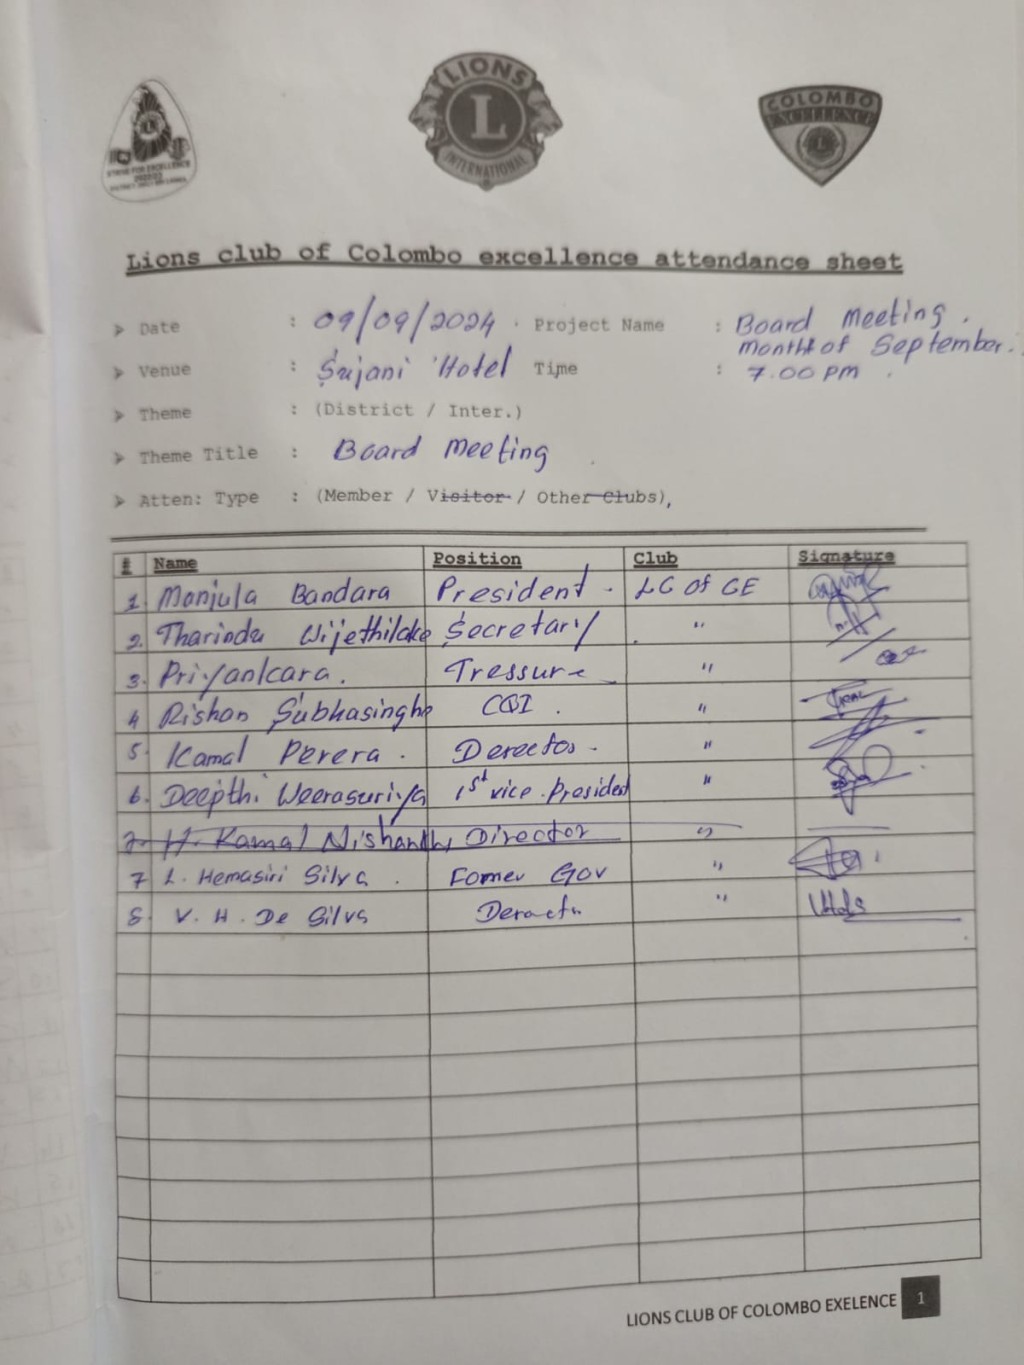 LIONS
L
INTERNATIONAL
COLOMBO
EXCELLENCE
STRIVE FOR EXCELLENCE
Lions club of Colombo excellence attendance sheet
➤ Date : 09/09/2024 . Project Name : Board Meeting .
month of September.
➤ Venue : Sujani Hotel Time : 7.00 PM .
➤ Theme : (District / Inter.)
➤ Theme Title : Board Meeting .
➤ Atten: Type : (Member / Visitor / Other Clubs),
# Name Position Club Signature
1. Manjula Bandara President . LC of CE
2. Tharindu Wijethilake Secretary "
3. Priyankara. Tressure "
4 Rishan Subhasinghe CQI . "
5. Kamal Perera . Derector . "
6. Deepthi Weerasuriya 1st vice . President "
7. H. Kamal Nishantha Director "
7 L. Hemasiri Silva . Fomer Gov "
8. V. H. De Silva "
LIONS CLUB OF COLOMBO EXELENCE 1